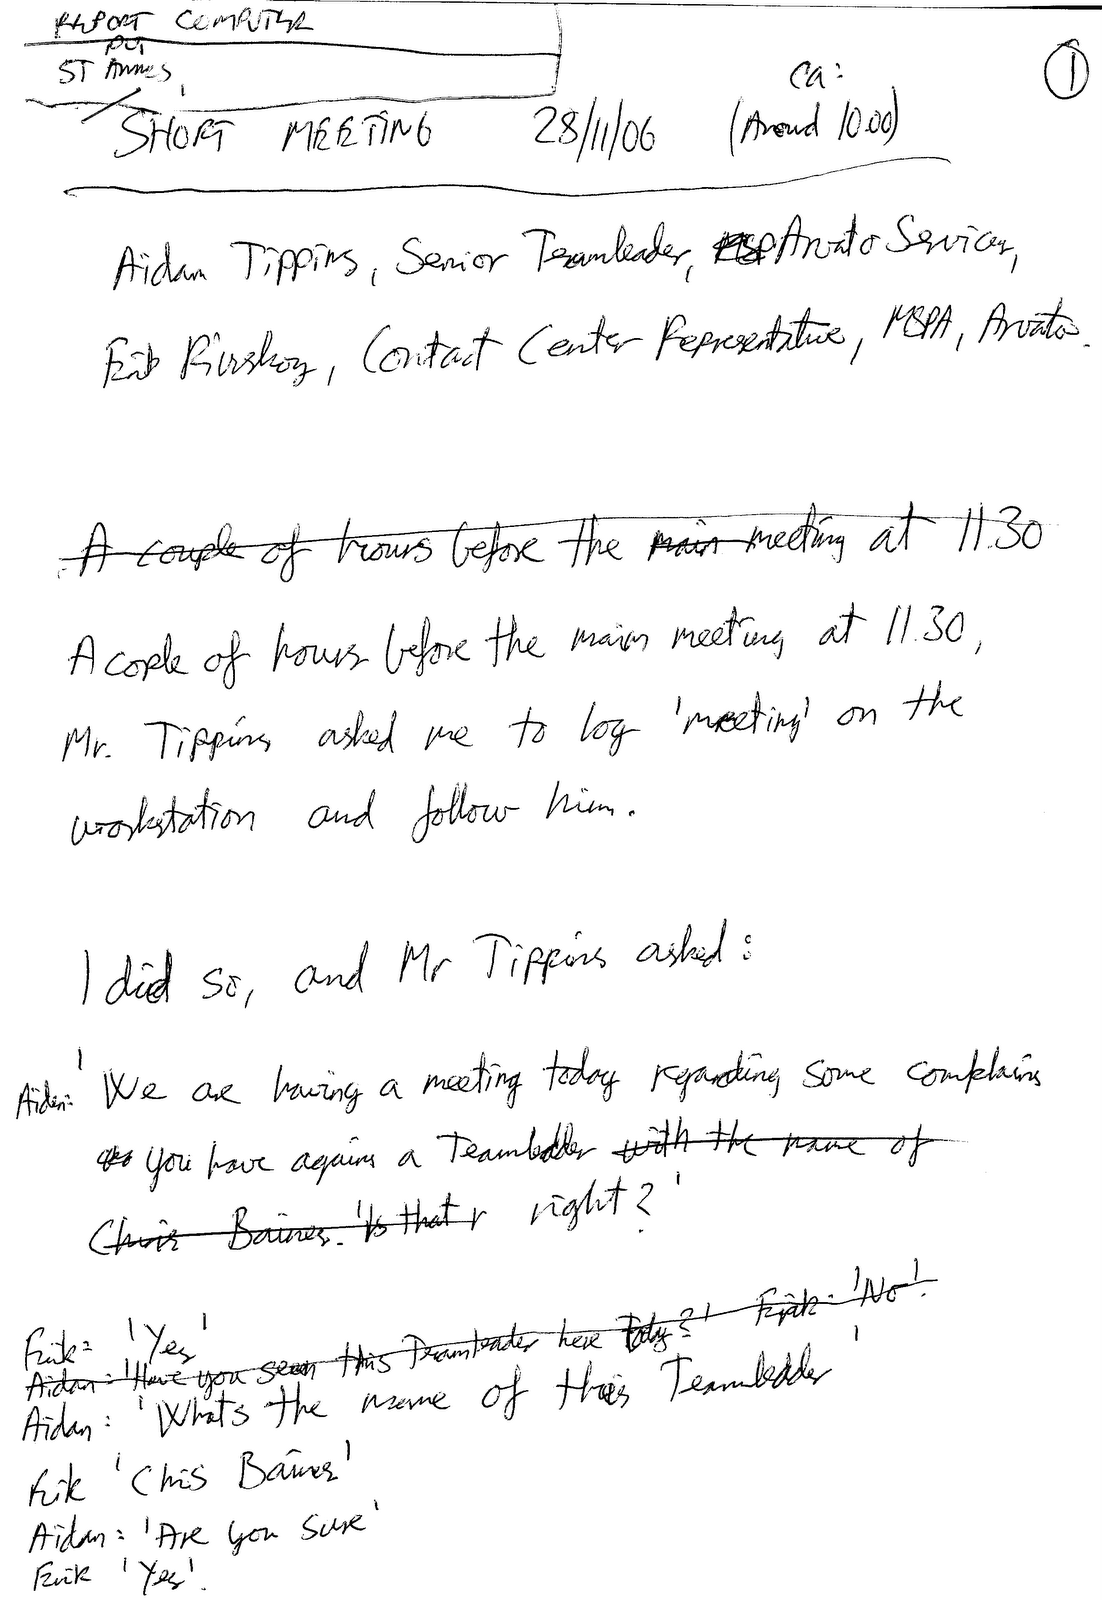 REPORT COMPUTER
ST Annes
①
ca:
SHORT MEETING 28/11/06 (Around 10.00)
Aidan Tippins, Senior Teamleader, Arvato Services,
Erik Contact Center Representative, MSPA, Arvato.
A couple of hours before the main meeting at 11.30
A cople of hours before the main meeting at 11.30,
Mr. Tippins asked me to log 'meeting' on the
workstation and follow him.
I did so, and Mr Tippins asked:
Aidan: 'We are having a meeting today regarding some complains
you have agains a Teamleader with the name of
Chris Baines. 'Is that r right?'
Erik: 'Yes'
Aidan: 'Have you seen this Teamleader here Today?' Erik: 'No'.
Aidan: 'Whats the name of this Teamleader'
Erik 'Chris Baines'
Aidan: 'Are you sure'
Erik 'Yes'.